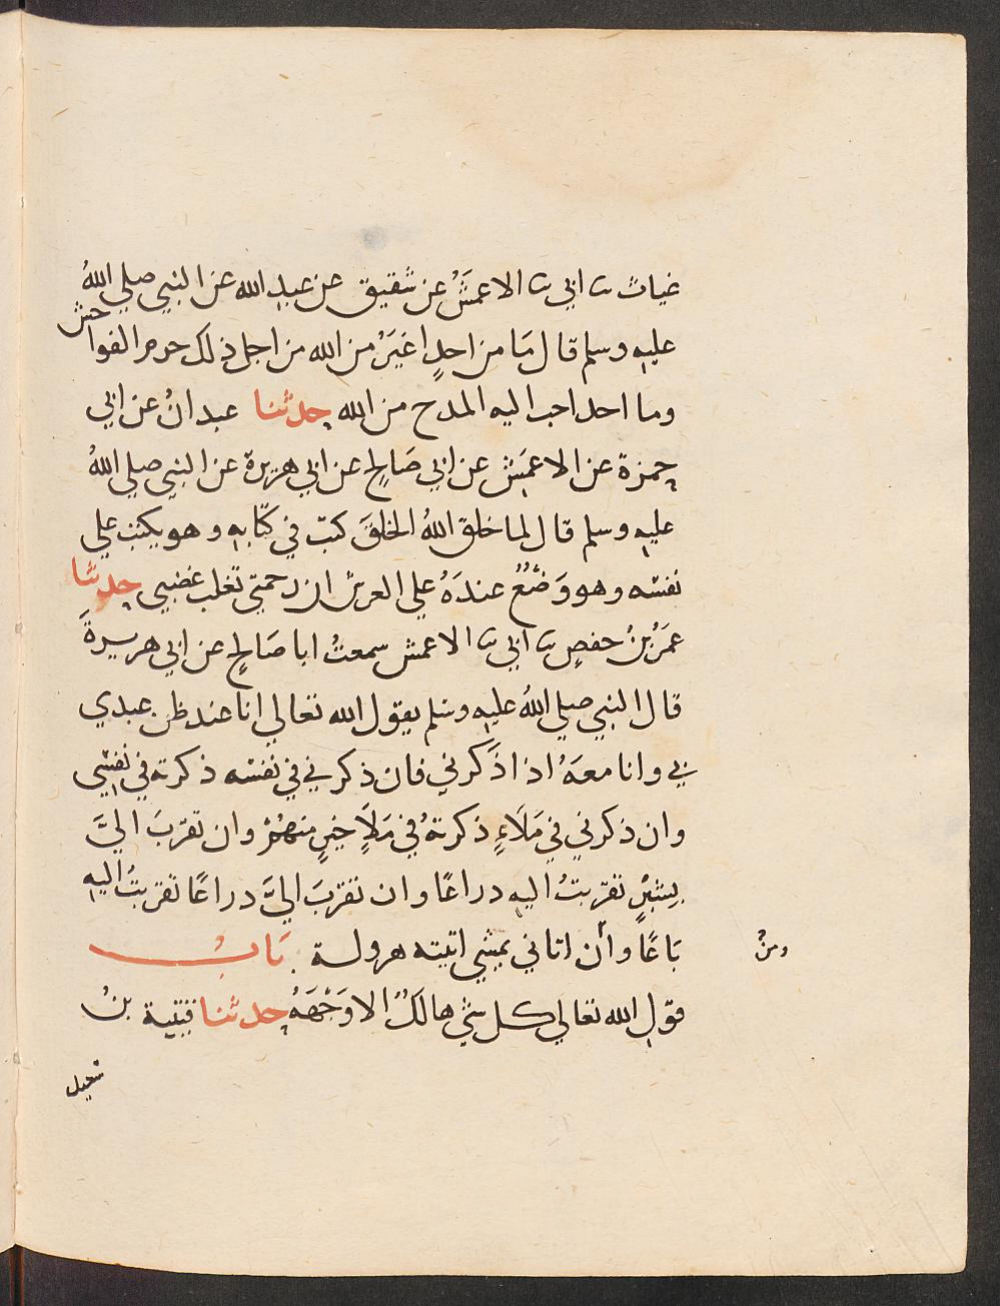 غياث ثنا ابي ثنا الاعمَشُ عن شقيق عن عبدِ الله عن النبي صلي اللهُ
عليه وسلم قال مَا من احدٍ اغيَرُ من الله من اجل ذلك حرم الفواحش
وما احد احب اليه المدح من الله حدثنا عبدانُ عن ابي
حمزة عن الاعمَشِ عن ابي صَالحٍ عن ابي هريرة عن النبي صلي اللهُ
عليه وسلم قال لما خلق اللهُ الخلقَ كتب في كتَابه وهو يكتب علي
نفسه وهو وَضْعٌ عندَهُ علي العرش ان رحمتي تغلب غضبي حدثنا
عمَرُ بنُ حفصٍ ثنا ابي ثنا الاعمش سمعتُ ابا صَالحٍ عن ابي هريرةَ
قال النبي صلي اللهُ عليه وسلم يقول الله تعالي انا عند ظن عبدي
بي وانا معهُ اذا ذَكرني فان ذكرني في نفسه ذكرته في نفسي
وان ذكرني في مَلَاءٍ ذكرتهُ في مَلَإٍ خيرٍ منهُمْ وان تقربَ اليَّ
بِشبْرٍ تقربتُ اليه دراعًا وان تقربَ اليَّ دراعًا تقربتُ اليه
بَاعًا وأن اتاني يمشي اتيته هرولة بَابُ
ومنْ
قول الله تعالي كل شي هالكٌ الا وَجْهَهُ حدثنا قتيبة بنُ
سعيد